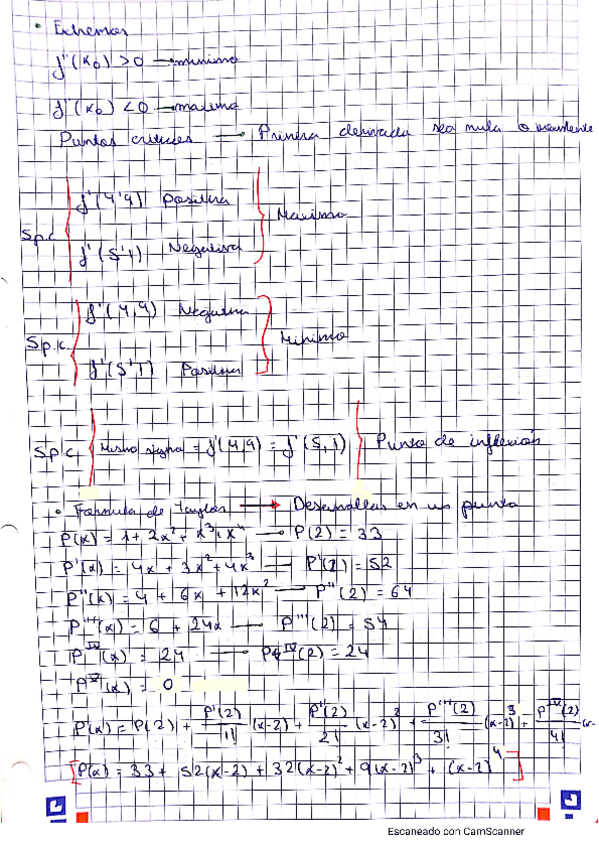 • Extremos
f''(x₀) > 0 → minimo
f''(x₀) < 0 → maximo
Puntos criticos → Primera derivada sea nula o
S.p.c. f'(4'9) Positiva
f'(5'1) Negativa
Maximo
S.p.c. f'(4,9) Negativa
f'(5'1) Positiva
Minimo
S.p.c. Mismo signo = f'(4,9) = f'(5,1) Punto de inflexión
• Formula de Taylor → Desarrollar en un punto
P(x) = 1 + 2x² + x³ + x⁴ → P(2) = 33
P'(x) = 4x + 3x² + 4x³ — P'(2) = 52
P''(x) = 4 + 6x + 12x² — P''(2) = 64
P'''(x) = 6 + 24x — P'''(2) = 54
P^IV(x) = 24 — P^IV(2) = 24
P^V(x) = 0
P(x) = P(2) + P'(2)/1! (x-2) + P''(2)/2! (x-2)² + P'''(2)/3! (x-2)³ + P^IV(2)/4! (x-
[P(x) = 33 + 52(x-2) + 32(x-2)² + 9(x-2)³ + (x-2)⁴]
Escaneado con CamScanner